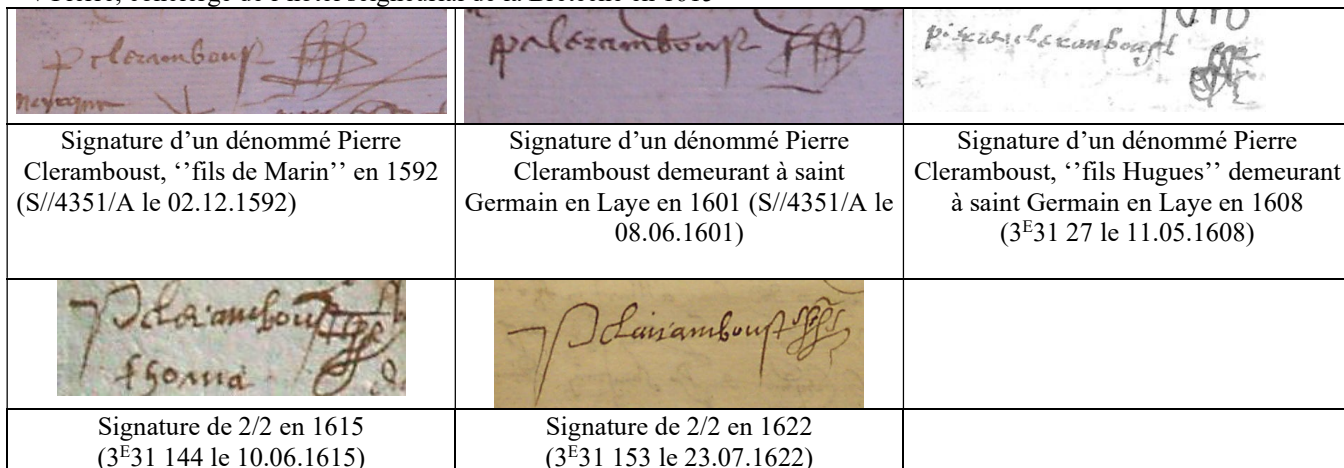 Pierre, concierge de l'hôtel seigneurial de la Bretèche en 1615
P cleramboust
P cleramboust
pierre cleramboust
Signature d’un dénommé Pierre
Cleramboust, ‘‘fils de Marin’’ en 1592
(S//4351/A le 02.12.1592)
Signature d’un dénommé Pierre
Cleramboust demeurant à saint
Germain en Laye en 1601 (S//4351/A le
08.06.1601)
Signature d’un dénommé Pierre
Cleramboust, ‘‘fils Hugues’’ demeurant
à saint Germain en Laye en 1608
(3ᴱ31 27 le 11.05.1608)
P cleramboust
thoma
P clairamboust
Signature de 2/2 en 1615
(3ᴱ31 144 le 10.06.1615)
Signature de 2/2 en 1622
(3ᴱ31 153 le 23.07.1622)